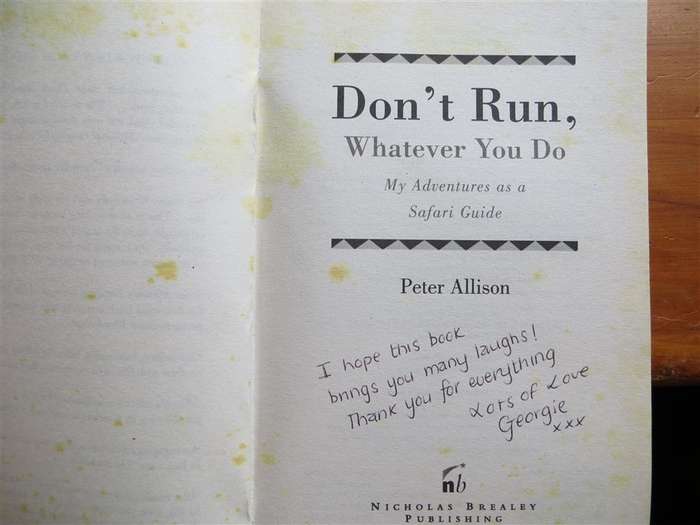 Don't Run,
Whatever You Do
My Adventures as a
Safari Guide
Peter Allison
I hope this book
brings you many laughs!
Thank you for everything
Lots of Love
Georgie
xxx
nb
NICHOLAS BREALEY
PUBLISHING